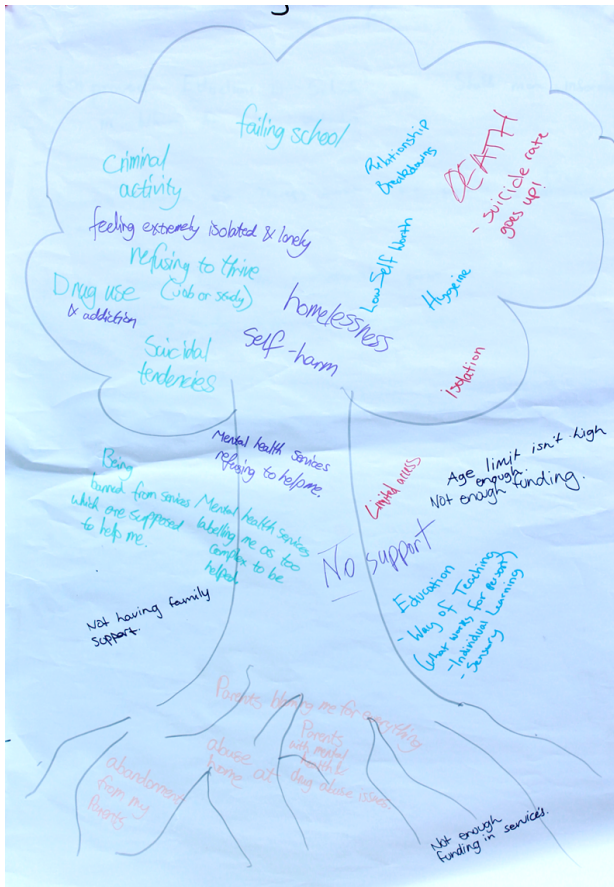 failing school
Relationship
Breakdowns
DEATH
- suicide rate
goes up!
Criminal
activity
feeling extremely isolated & lonely
refusing to thrive
(job or study)
Low-Self Worth
Hygeine
Drug use
& addiction
homelessness
Self-harm
Suicidal
tendencies
isolation
Mental health services
refusing to help me.
Being
banned from services
which are supposed
to help me.
Mental health services
labelling me as too
complex to be
helped
Limited access
Age limit isn't high
enough.
Not enough funding.
No support
Education
- Way of Teaching
(what works for person)
- Individual Learning
- Sensory
Not having family
support.
Parents blaming me for everything
Parents
with mental
health &
drug abuse issues.
abuse at
home
abandonment
from my
Parents
Not enough
funding in services.